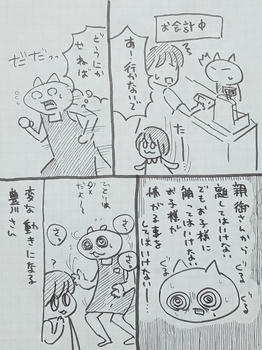 お会計中
あー行かないで
どうにか
せねば
だだだ…
親御さんから
離してはいけない
でもお子様に
触ってはいけない
お子様が
怖がる事を
してはいけない…
ぐる
ぐる
ひとりは
ダメ
だよ〜
さっ
さっ
変な動きになる
豊川さん